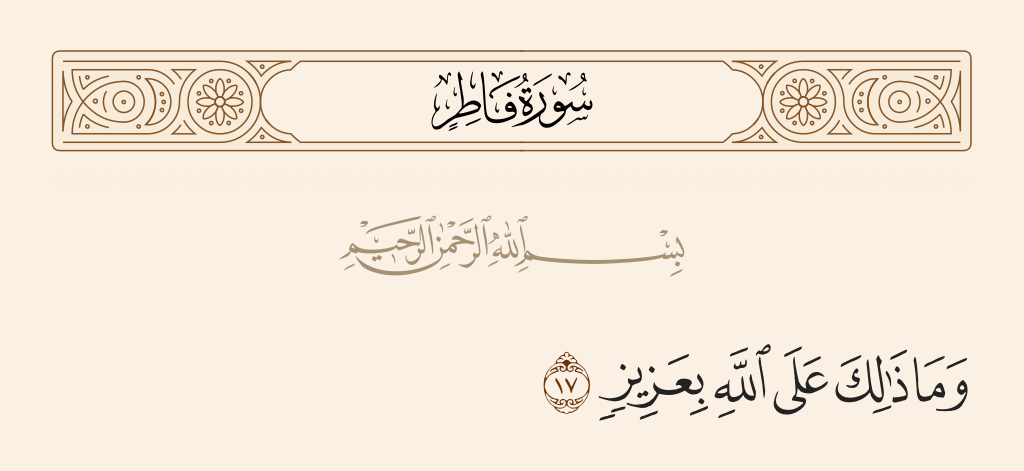 سُورَةُ فَاطِرٍ
بِسْمِ ٱللَّهِ ٱلرَّحْمَٰنِ ٱلرَّحِيمِ
وَمَا ذَٰلِكَ عَلَى ٱللَّهِ بِعَزِيزٍ ١٧